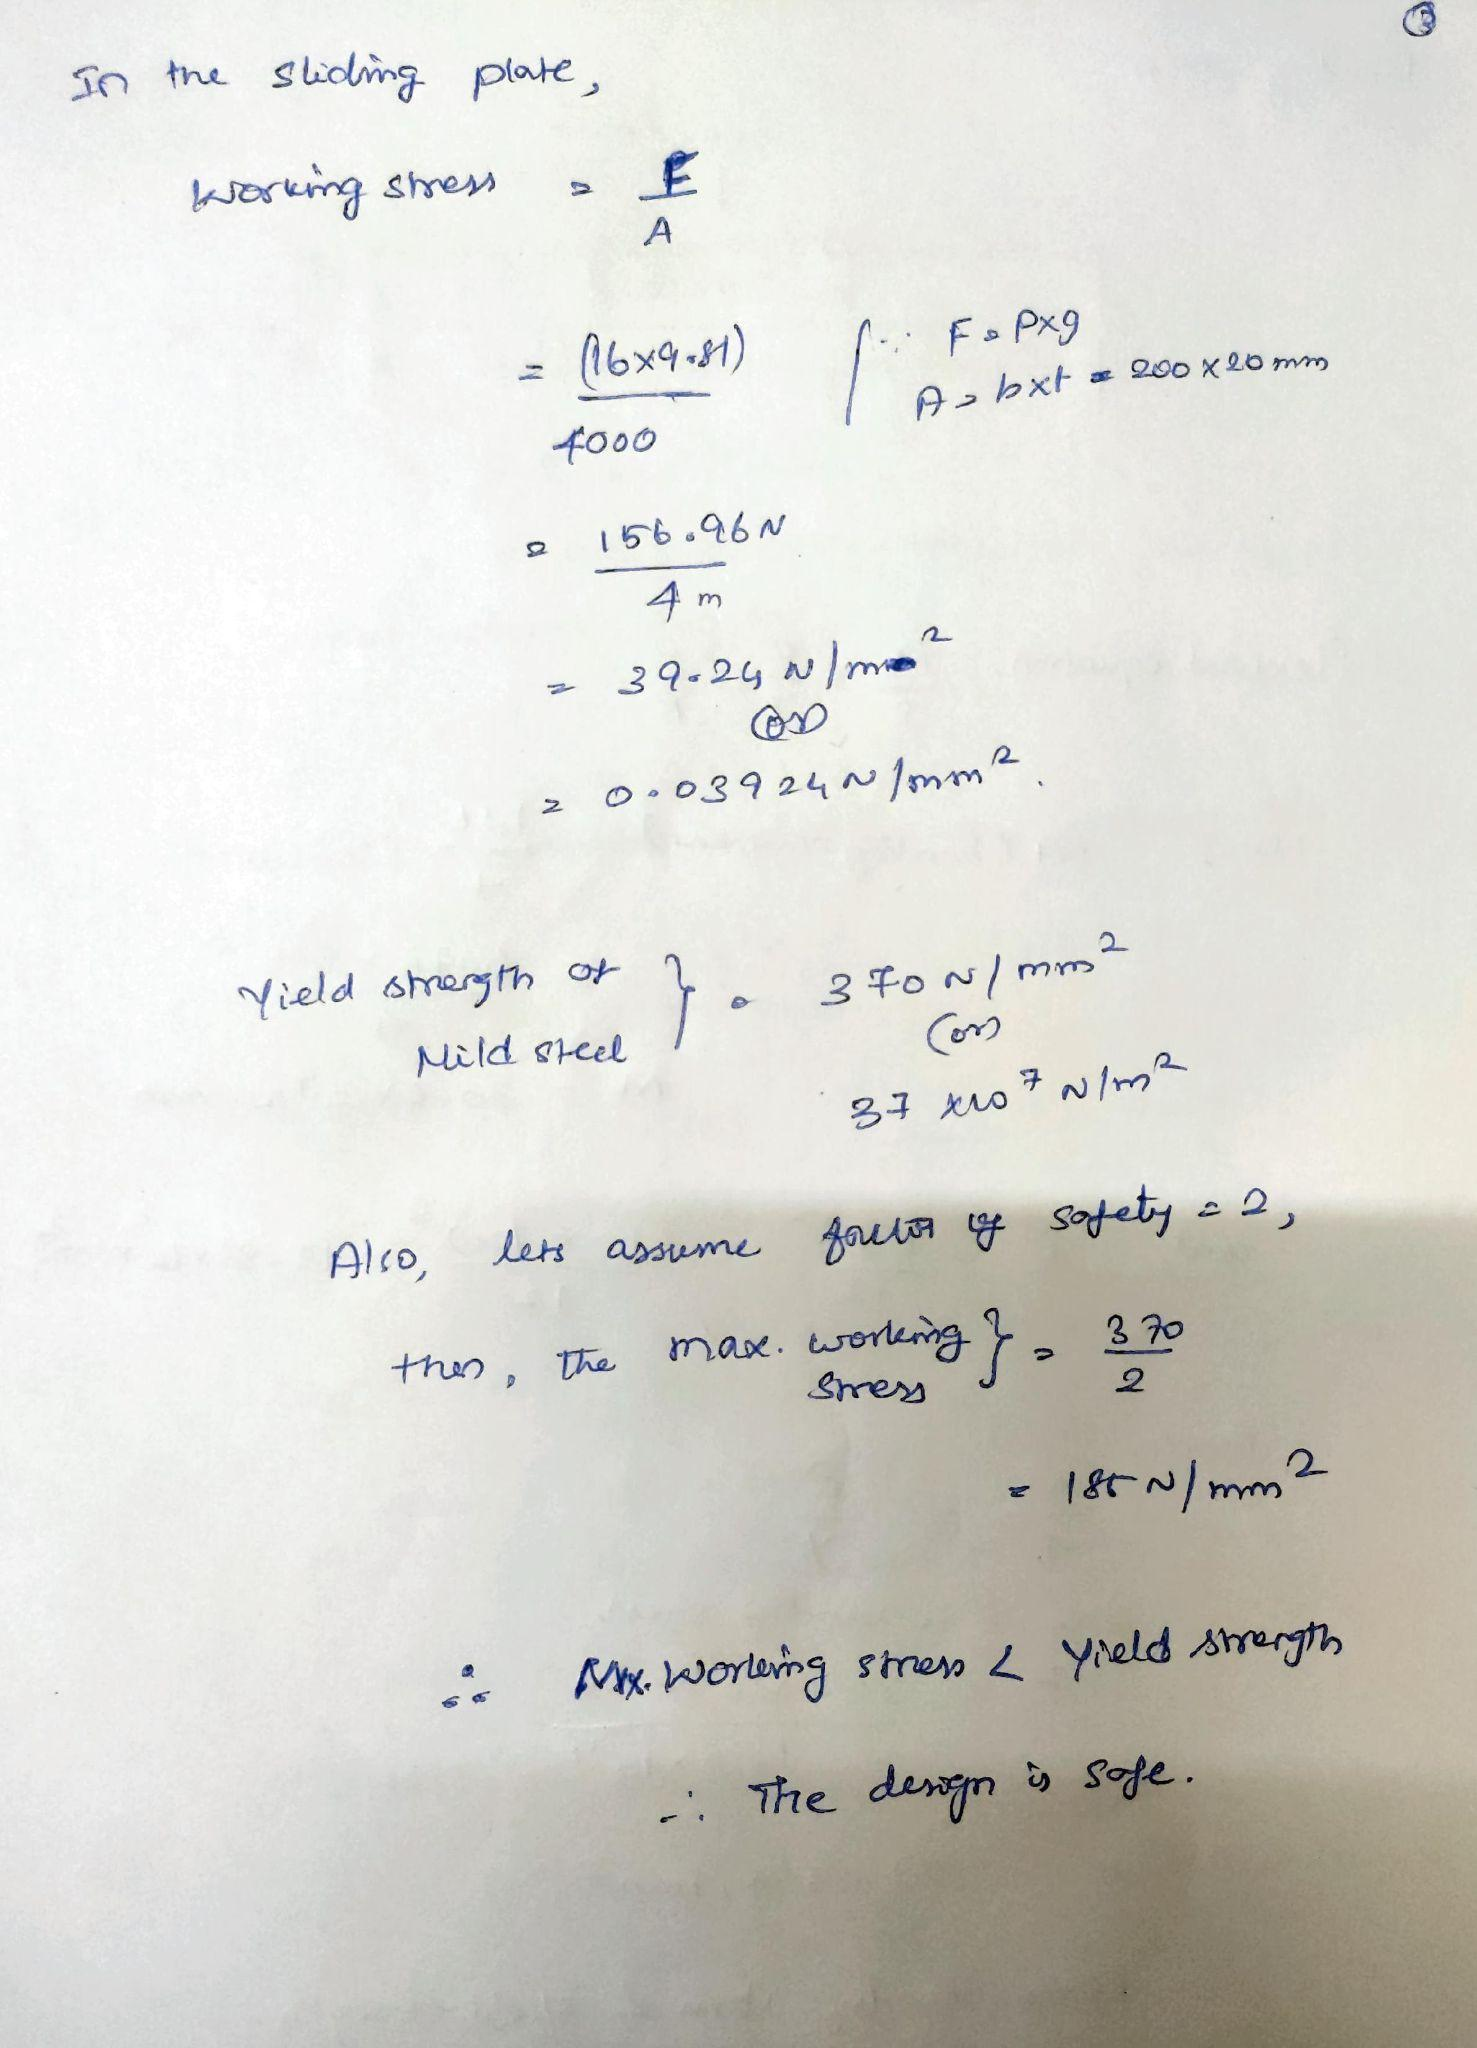 3
In the sliding plate,
Working stress = F/A
= (16x9.81)/4000 [∵ F = Pxg
A = bxt = 200 x 20 mm
= 156.96 N/4 m
= 39.24 N/m²
(or)
= 0.03924 N/mm².
Yield strength of Mild steel } = 370 N/mm²
(or)
37 x10⁷ N/m²
Also, lets assume factor of safety = 2,
then, the max. working stress } = 370/2
= 185 N/mm²
∴ Max. Working stress < Yield strength
∴ The design is safe.